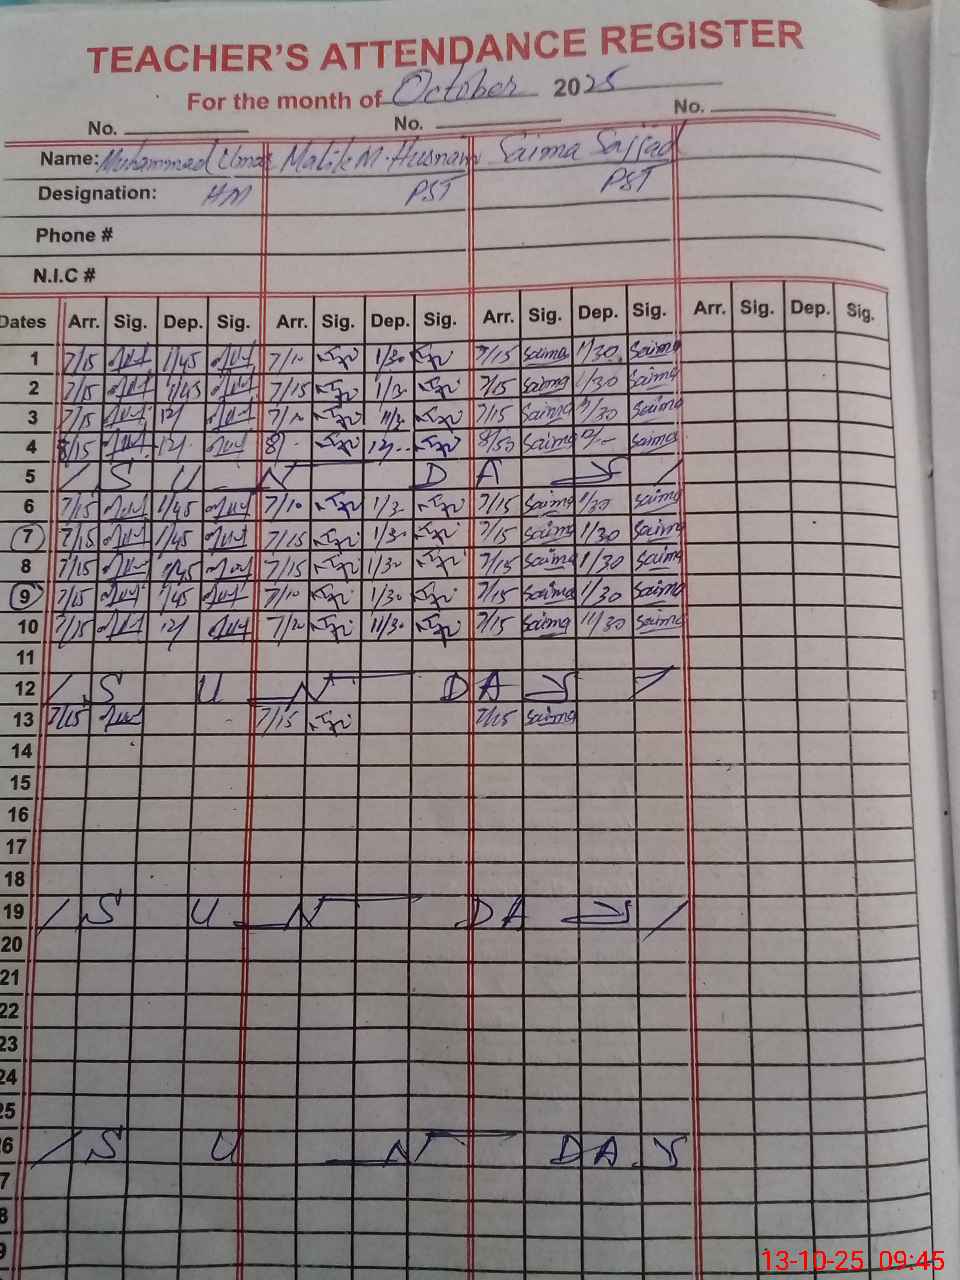 TEACHER'S ATTENDANCE REGISTER
For the month of October 2025
No. No. No.
Name: Muhammad Umar Malik M. Husnain Saima Sajjad
Designation: HM PST PST
Phone #
N.I.C #
Dates Arr. Sig. Dep. Sig. Arr. Sig. Dep. Sig. Arr. Sig. Dep. Sig. Arr. Sig. Dep. Sig.
1 7/15 1/45 7/10 1/30 7/15 Saima 1/30 Saima
2 7/15 1/45 7/15 1/30 7/15 Saima 1/30 Saima
3 7/15 12/ 7/10 11/30 7/15 Saima 11/30 Saima
4 8/15 12/ 8/ 12/ 8/ Saima 12/ Saima
5 / S U N D A Y /
6 7/15 1/45 7/10 1/30 7/15 Saima 1/30 Saima
7 7/15 1/45 7/15 1/30 7/15 Saima 1/30 Saima
8 7/15 1/45 7/15 1/30 7/15 Saima 1/30 Saima
9 7/15 1/45 7/10 1/30 7/15 Saima 1/30 Saima
10 7/15 12/ 7/20 11/30 7/15 Saima 11/30 Saima
11
12 / S U N D A Y /
13 7/15 7/15 7/15 Saima
14
15
16
17
18
19 / S U N D A Y /
20
21
22
23
24
25
6 / S U N D A Y
7
8
9
13-10-25 09:45